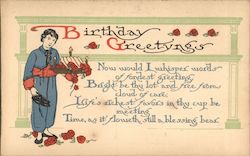 Birthday
Greetyngs
Now would I whisper words
of fondest greeting,
Bright be thy lot and free from
cloud of care.
Life's richest favors in thy cup be
meeting
Time, as it floweth, still a blessing bear.